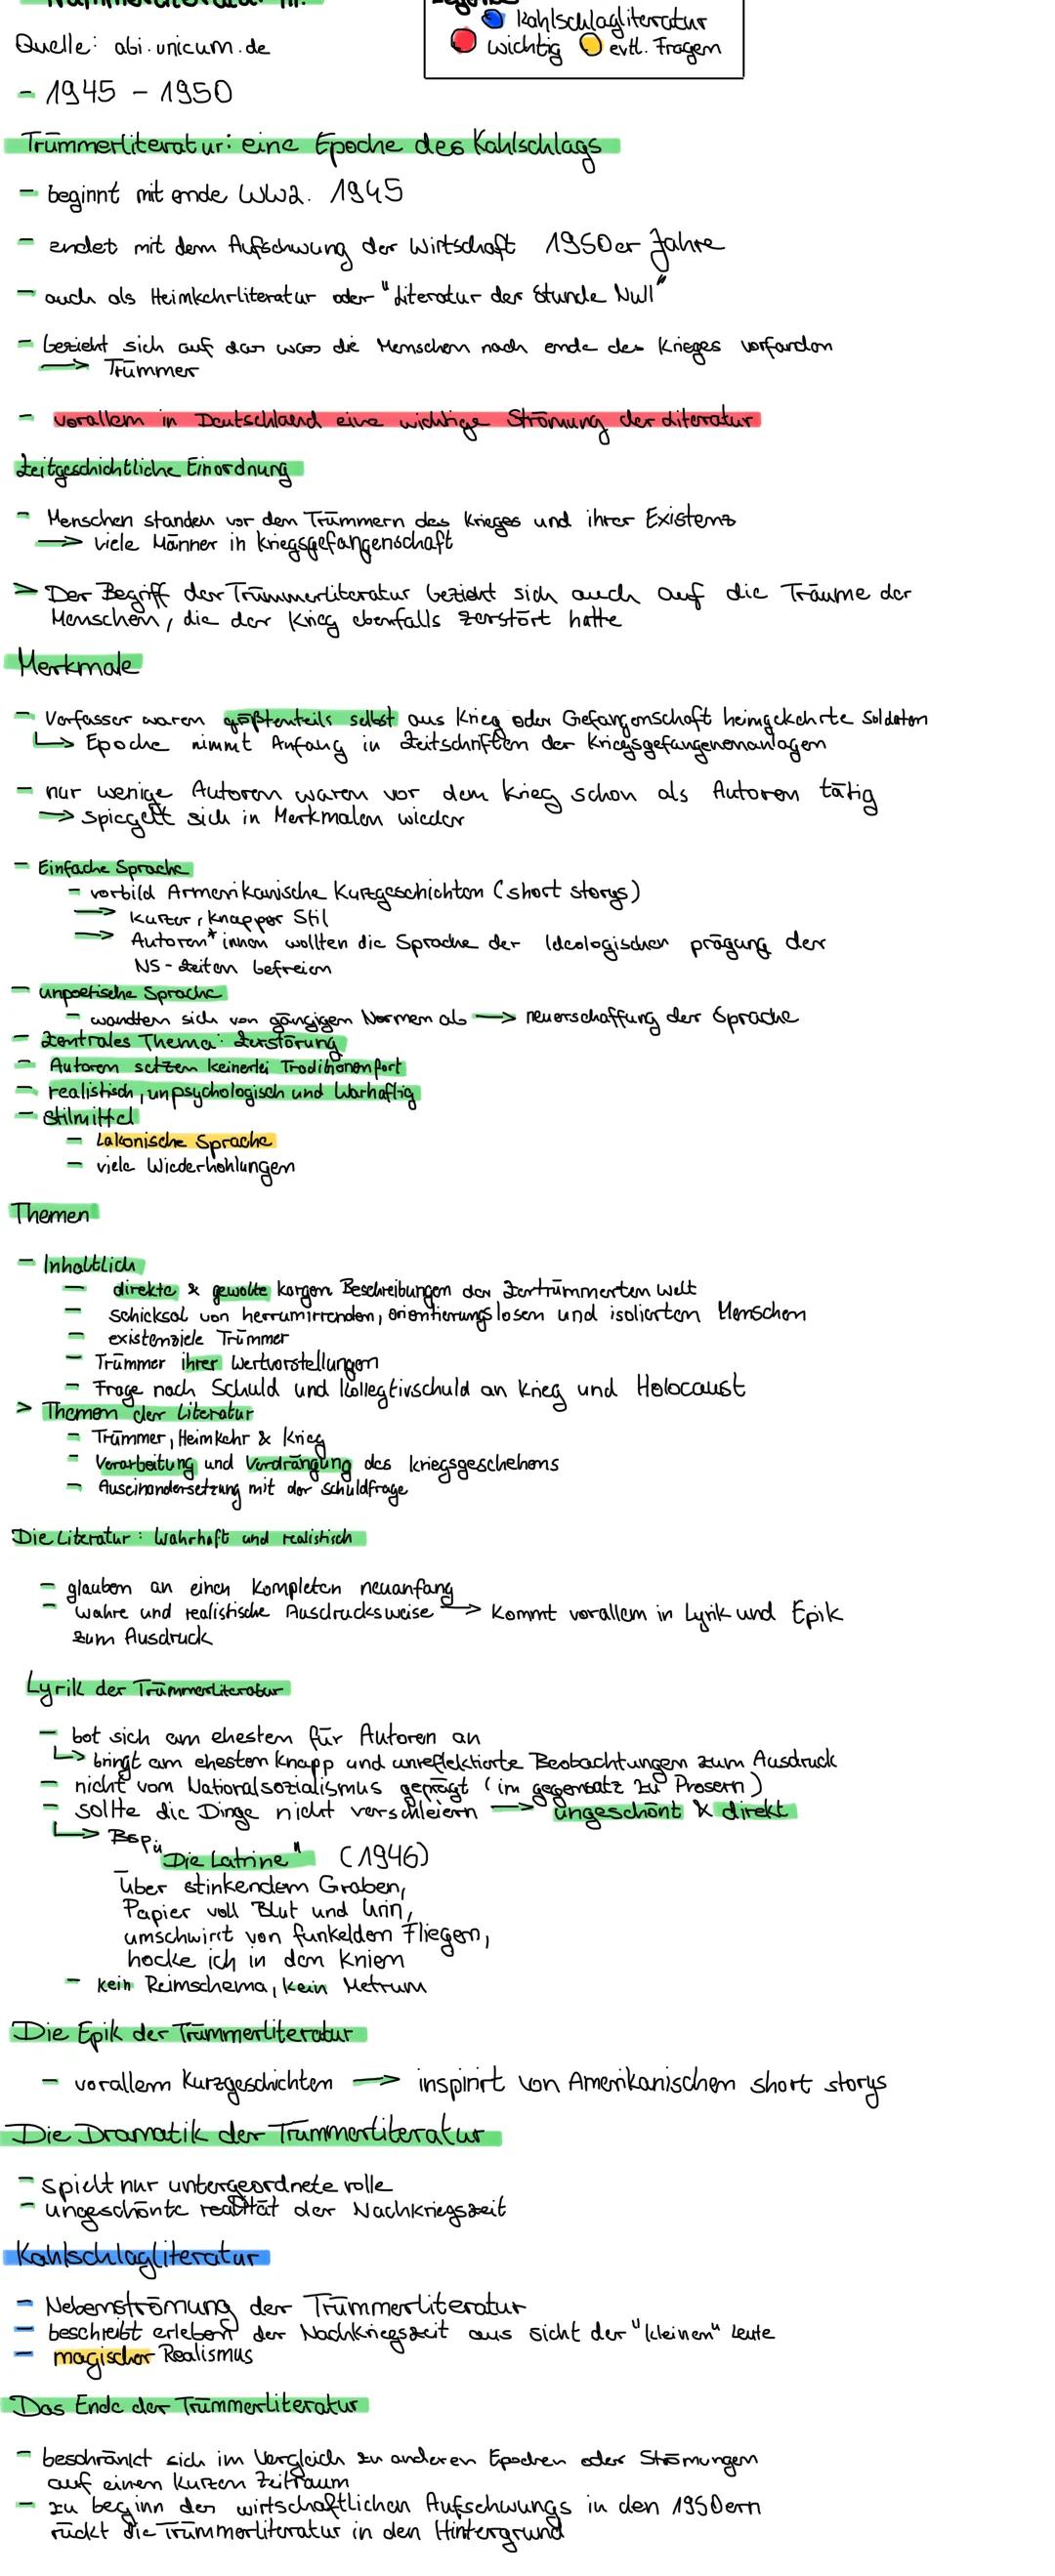 Quelle: abi.unicum.de
Kahlschlagliteratur
wichtig evtl. Fragen
- 1945 - 1950
Trümmerliteratur: eine Epoche des Kahlschlags
- beginnt mit ende WW2. 1945
- endet mit dem Aufschwung der Wirtschaft 1950er Jahre
- auch als Heimkehrliteratur oder "Literatur der Stunde Null"
- bezieht sich auf das was die Menschen nach ende des Krieges vorfanden
→ Trümmer
- vorallem in Deutschland eine wichtige Strömung der Literatur
Zeitgeschichtliche Einordnung
- Menschen standen vor dem Trümmern des Krieges und ihrer Existenz
→ viele Männer in Kriegsgefangenschaft
> Der Begriff der Trümmerliteratur bezieht sich auch auf die Träume der
Menschen, die der Krieg ebenfalls zerstört hatte
Merkmale
- Verfasser waren größtenteils selbst aus Krieg oder Gefangenschaft heimgekehrte Soldaten
↳ Epoche nimmt Anfang in Zeitschriften der Kriegsgefangenenanlagen
- nur wenige Autoren waren vor dem Krieg schon als Autoren tätig
→ spiegelt sich in Merkmalen wieder
- Einfache Sprache
- vorbild Armerikanische Kurzgeschichten (short storys)
→ kurzer, knapper Stil
→ Autoren*innen wollten die Sprache der Ideologischen prägung der
NS-Zeiten befreien
- unpoetische Sprache
- wandten sich von gängigen Normen ab → neuerschaffung der Sprache
- Zentrales Thema: Zerstörung
- Autoren setzen keinerlei Traditionen fort
- realistisch, unpsychologisch und Warhaftig
- Stilmittel
- Lakonische Sprache
- viele Wiederhohlungen
Themen
- Inhaltlich
- direkte & gewollte kargen Beschreibungen der Zertrümmerten Welt
- schicksal von herrumirrenden, orientierungslosen und isolierten Menschen
- existenziele Trümmer
- Trümmer ihrer Wertvorstellungen
- Frage nach Schuld und Kollegtivschuld an Krieg und Holocaust
> Themen der Literatur
- Trümmer, Heimkehr & Krieg
- Verarbeitung und Verdrängung des Kriegsgeschehens
- Auseinandersetzung mit der Schuldfrage
Die Literatur: Wahrhaft und realistisch
- glauben an einen Kompleten neuanfang
- wahre und realistische Ausdrucksweise → Kommt vorallem in Lyrik und Epik
zum Ausdruck
Lyrik der Trümmerliteratur
- bot sich am ehesten für Autoren an
↳ bringt am ehesten knapp und unreflektierte Beobachtungen zum Ausdruck
- nicht vom Nationalsozialismus geprägt (im gegensatz zu Prosern)
- sollte die Dinge nicht verschleiern → ungeschönt & direkt
↳ Bsp "Die Latrine" (1946)
Über stinkendem Graben,
Papier voll Blut und Urin,
umschwirrt von funkelden Fliegen,
hocke ich in den Knien
- kein Reimschema, kein Metrum
Die Epik der Trümmerliteratur
- vorallem Kurzgeschichten → inspirirt von Amerikanischen short storys
Die Dramatik der Trümmerliteratur
- spielt nur untergeordnete rolle
- ungeschönte realität der Nachkriegszeit
Kahlschlagliteratur
- Nebenströmung der Trümmerliteratur
- beschreibt erleben der Nachkriegszeit aus sicht der "kleinen" Leute
- magischer Realismus
Das Ende der Trümmerliteratur
- beschränkt sich im Vergleich zu anderen Epochen oder Strömungen
auf einen kurzen Zeitraum
- zu beginn des wirtschaftlichen Aufschwungs in den 1950ern
rückt die Trümmerliteratur in den Hintergrund